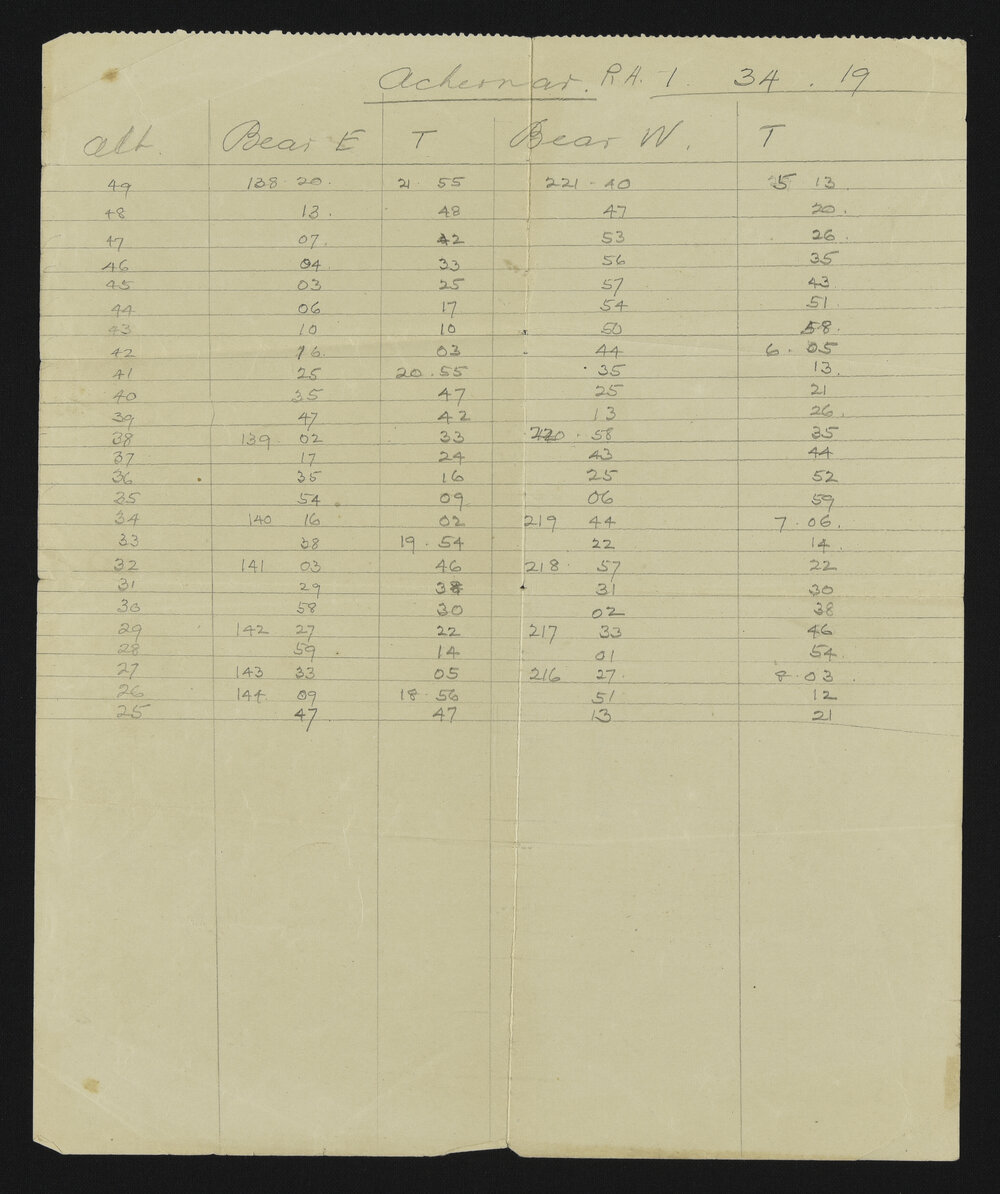 Achernar. R.A. 1. 34. 19
Alt. Bear E T Bear W. T
49 138 20. 21 55 221 - 40 5 13.
48 13. 48 47 20.
47 07. 42 53 26.
46 04 33 56 35
45 03 25 57 43
44 06 17 54 51
43 10 10 50 58.
42 16. 03 44 6. 05
41 25 20.55 35 13.
40 35 47 25 21
39 47 42 13 26.
38 139 02 33 220. 58 35
37 17 24 43 44
36 35 16 25 52
35 54 09 06 59
34 140 16 02 219 44 7.06.
33 38 19.54 22 14.
32 141 03 46 218 57 22
31 29 38 31 30
30 58 30 02 38
29 142 27 22 217 33 46
28 59. 14 01 54.
27 143 33 05 216 27 8.03
26 144 09 18.56 51 12
25 47 47 13 21